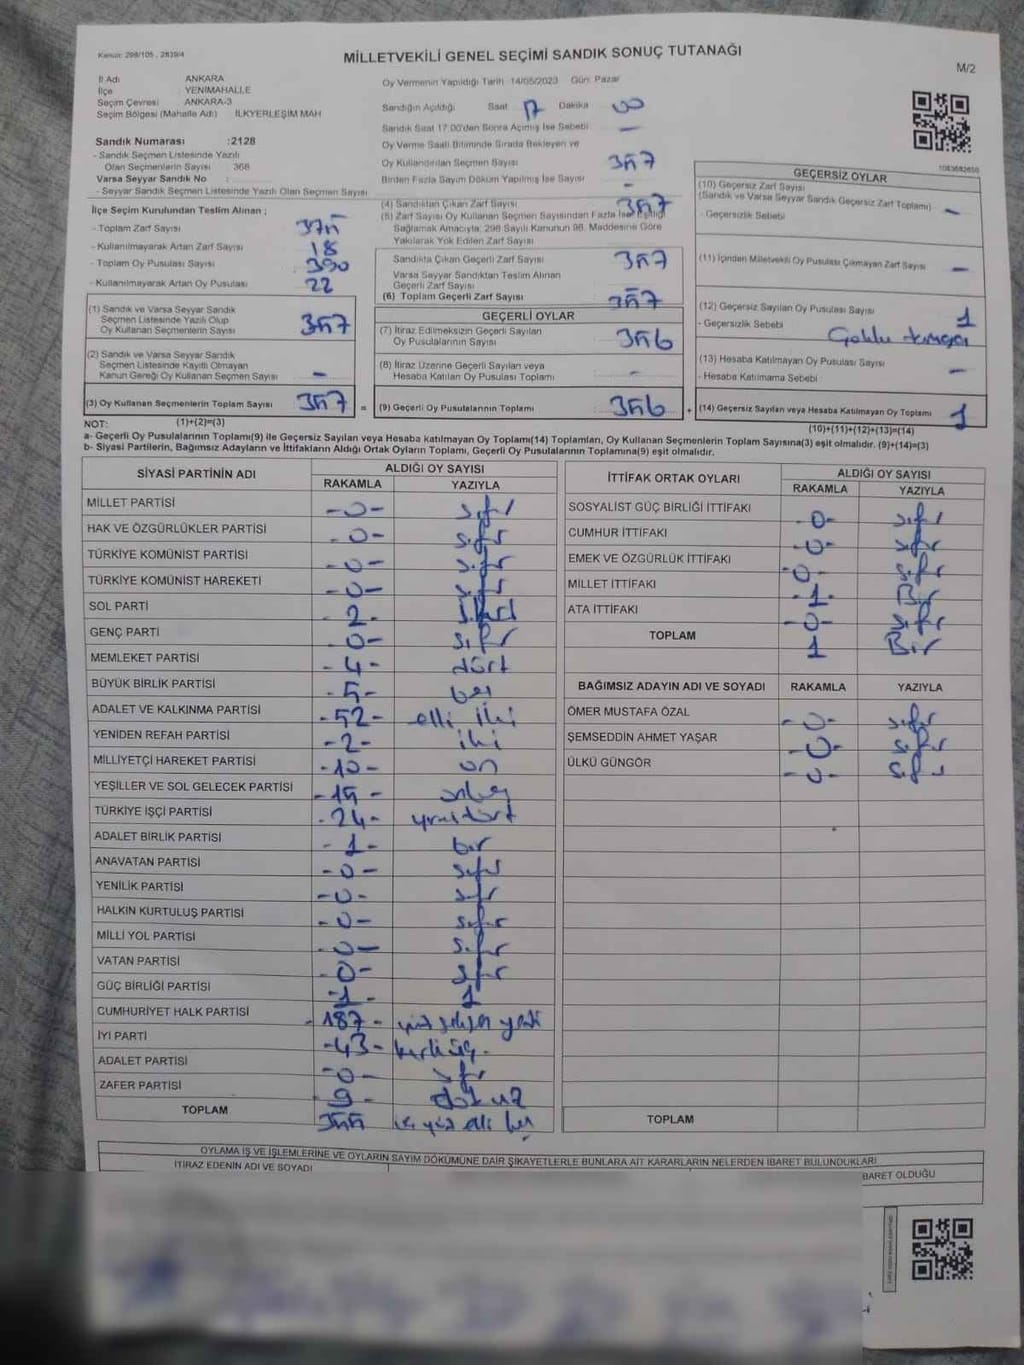 Kanun: 298/105 , 2839/4
MİLLETVEKİLİ GENEL SEÇİMİ SANDIK SONUÇ TUTANAĞI
M/2
İl Adı ANKARA
İlçe YENİMAHALLE
Seçim Çevresi ANKARA-3
Seçim Bölgesi (Mahalle Adı) İLKYERLEŞİM MAH
Sandık Numarası :2128
- Sandık Seçmen Listesinde Yazılı
Olan Seçmenlerin Sayısı 368
Varsa Seyyar Sandık No
- Seyyar Sandık Seçmen Listesinde Yazılı Olan Seçmen Sayısı
Oy Vermenin Yapıldığı Tarih 14/05/2023 Gün: Pazar
Sandığın Açıldığı Saat 17 Dakika 00
Sandık Saat 17.00'den Sonra Açılmış İse Sebebi -
Oy Verme Saati Bitiminde Sırada Bekleyen ve
Oy Kullandırılan Seçmen Sayısı 357
Birden Fazla Sayım Döküm Yapılmış İse Sayısı -
İlçe Seçim Kurulundan Teslim Alınan ;
- Toplam Zarf Sayısı 375
- Kullanılmayarak Artan Zarf Sayısı 18
- Toplam Oy Pusulası Sayısı 390
- Kullanılmayarak Artan Oy Pusulası 22
(1) Sandık ve Varsa Seyyar Sandık
Seçmen Listesinde Yazılı Olup
Oy Kullanan Seçmenlerin Sayısı 357
(2) Sandık ve Varsa Seyyar Sandık
Seçmen Listesinde Kayıtlı Olmayan
Kanun Gereği Oy Kullanan Seçmen Sayısı -
(3) Oy Kullanan Seçmenlerin Toplam Sayısı 357 =
(1)+(2)=(3)
(4) Sandıktan Çıkan Zarf Sayısı 357
(5) Zarf Sayısı Oy Kullanan Seçmen Sayısından Fazla İse Eşitliği
Sağlamak Amacıyla, 298 Sayılı Kanunun 98. Maddesine Göre
Yakılarak Yok Edilen Zarf Sayısı
Sandıkta Çıkan Geçerli Zarf Sayısı 357
Varsa Seyyar Sandıktan Teslim Alınan
Geçerli Zarf Sayısı
(6) Toplam Geçerli Zarf Sayısı 357
GEÇERLİ OYLAR
(7) İtiraz Edilmeksizin Geçerli Sayılan
Oy Pusulalarının Sayısı 356
(8) İtiraz Üzerine Geçerli Sayılan veya
Hesaba Katılan Oy Pusulası Toplamı -
(9) Geçerli Oy Pusulalarının Toplamı 356 +
1083682650
GEÇERSİZ OYLAR
(10) Geçersiz Zarf Sayısı
(Sandık ve Varsa Seyyar Sandık Geçersiz Zarf Toplamı) -
- Geçersizlik Sebebi
(11) İçinden Milletvekili Oy Pusulası Çıkmayan Zarf Sayısı -
(12) Geçersiz Sayılan Oy Pusulası Sayısı 1
- Geçersizlik Sebebi
(13) Hesaba Katılmayan Oy Pusulası Sayısı -
- Hesaba Katılmama Sebebi
(14) Geçersiz Sayılan veya Hesaba Katılmayan Oy Toplamı 1
(10)+(11)+(12)+(13)=(14)
NOT:
a- Geçerli Oy Pusulalarının Toplamı(9) ile Geçersiz Sayılan veya Hesaba katılmayan Oy Toplamı(14) Toplamları, Oy Kullanan Seçmenlerin Toplam Sayısına(3) eşit olmalıdır. (9)+(14)=(3)
b- Siyasi Partilerin, Bağımsız Adayların ve İttifakların Aldığı Ortak Oyların Toplamı, Geçerli Oy Pusulalarının Toplamına(9) eşit olmalıdır.
SİYASİ PARTİNİN ADI ALDIĞI OY SAYISI
RAKAMLA YAZIYLA
MİLLET PARTİSİ -0- sıfır
HAK VE ÖZGÜRLÜKLER PARTİSİ -0- sıfır
TÜRKİYE KOMÜNİST PARTİSİ -0- sıfır
TÜRKİYE KOMÜNİST HAREKETİ -0- sıfır
SOL PARTİ -2-
GENÇ PARTİ -0- sıfır
MEMLEKET PARTİSİ -4- dört
BÜYÜK BİRLİK PARTİSİ -5- beş
ADALET VE KALKINMA PARTİSİ -52- elli iki
YENİDEN REFAH PARTİSİ -2- iki
MİLLİYETÇİ HAREKET PARTİSİ -10- on
YEŞİLLER VE SOL GELECEK PARTİSİ -15- onbeş
TÜRKİYE İŞÇİ PARTİSİ -24- yirmidört
ADALET BİRLİK PARTİSİ -1- bir
ANAVATAN PARTİSİ -0- sıfır
YENİLİK PARTİSİ -0- sıfır
HALKIN KURTULUŞ PARTİSİ -0- sıfır
MİLLİ YOL PARTİSİ -0- sıfır
VATAN PARTİSİ -0- sıfır
GÜÇ BİRLİĞİ PARTİSİ -1- 1
CUMHURİYET HALK PARTİSİ -187- yüz seksen yedi
İYİ PARTİ -43- kırküç
ADALET PARTİSİ -0- sıfır
ZAFER PARTİSİ 9- dokuz
TOPLAM 355 üç yüz elli beş
İTTİFAK ORTAK OYLARI ALDIĞI OY SAYISI
RAKAMLA YAZIYLA
SOSYALİST GÜÇ BİRLİĞİ İTTİFAKI -0- sıfır
CUMHUR İTTİFAKI -0- sıfır
EMEK VE ÖZGÜRLÜK İTTİFAKI -0- sıfır
MİLLET İTTİFAKI -1- Bir
ATA İTTİFAKI -0- sıfır
TOPLAM 1 Bir
BAĞIMSIZ ADAYIN ADI VE SOYADI RAKAMLA YAZIYLA
ÖMER MUSTAFA ÖZAL -0- sıfır
ŞEMSEDDİN AHMET YAŞAR -0- sıfır
ÜLKÜ GÜNGÖR -0- sıfır
TOPLAM
OYLAMA İŞ VE İŞLEMLERİNE VE OYLARIN SAYIM DÖKÜMÜNE DAİR ŞİKAYETLERLE BUNLARA AİT KARARLARIN NELERDEN İBARET BULUNDUKLARI
İTİRAZ EDENİN ADI VE SOYADI
BARET OLDUĞU